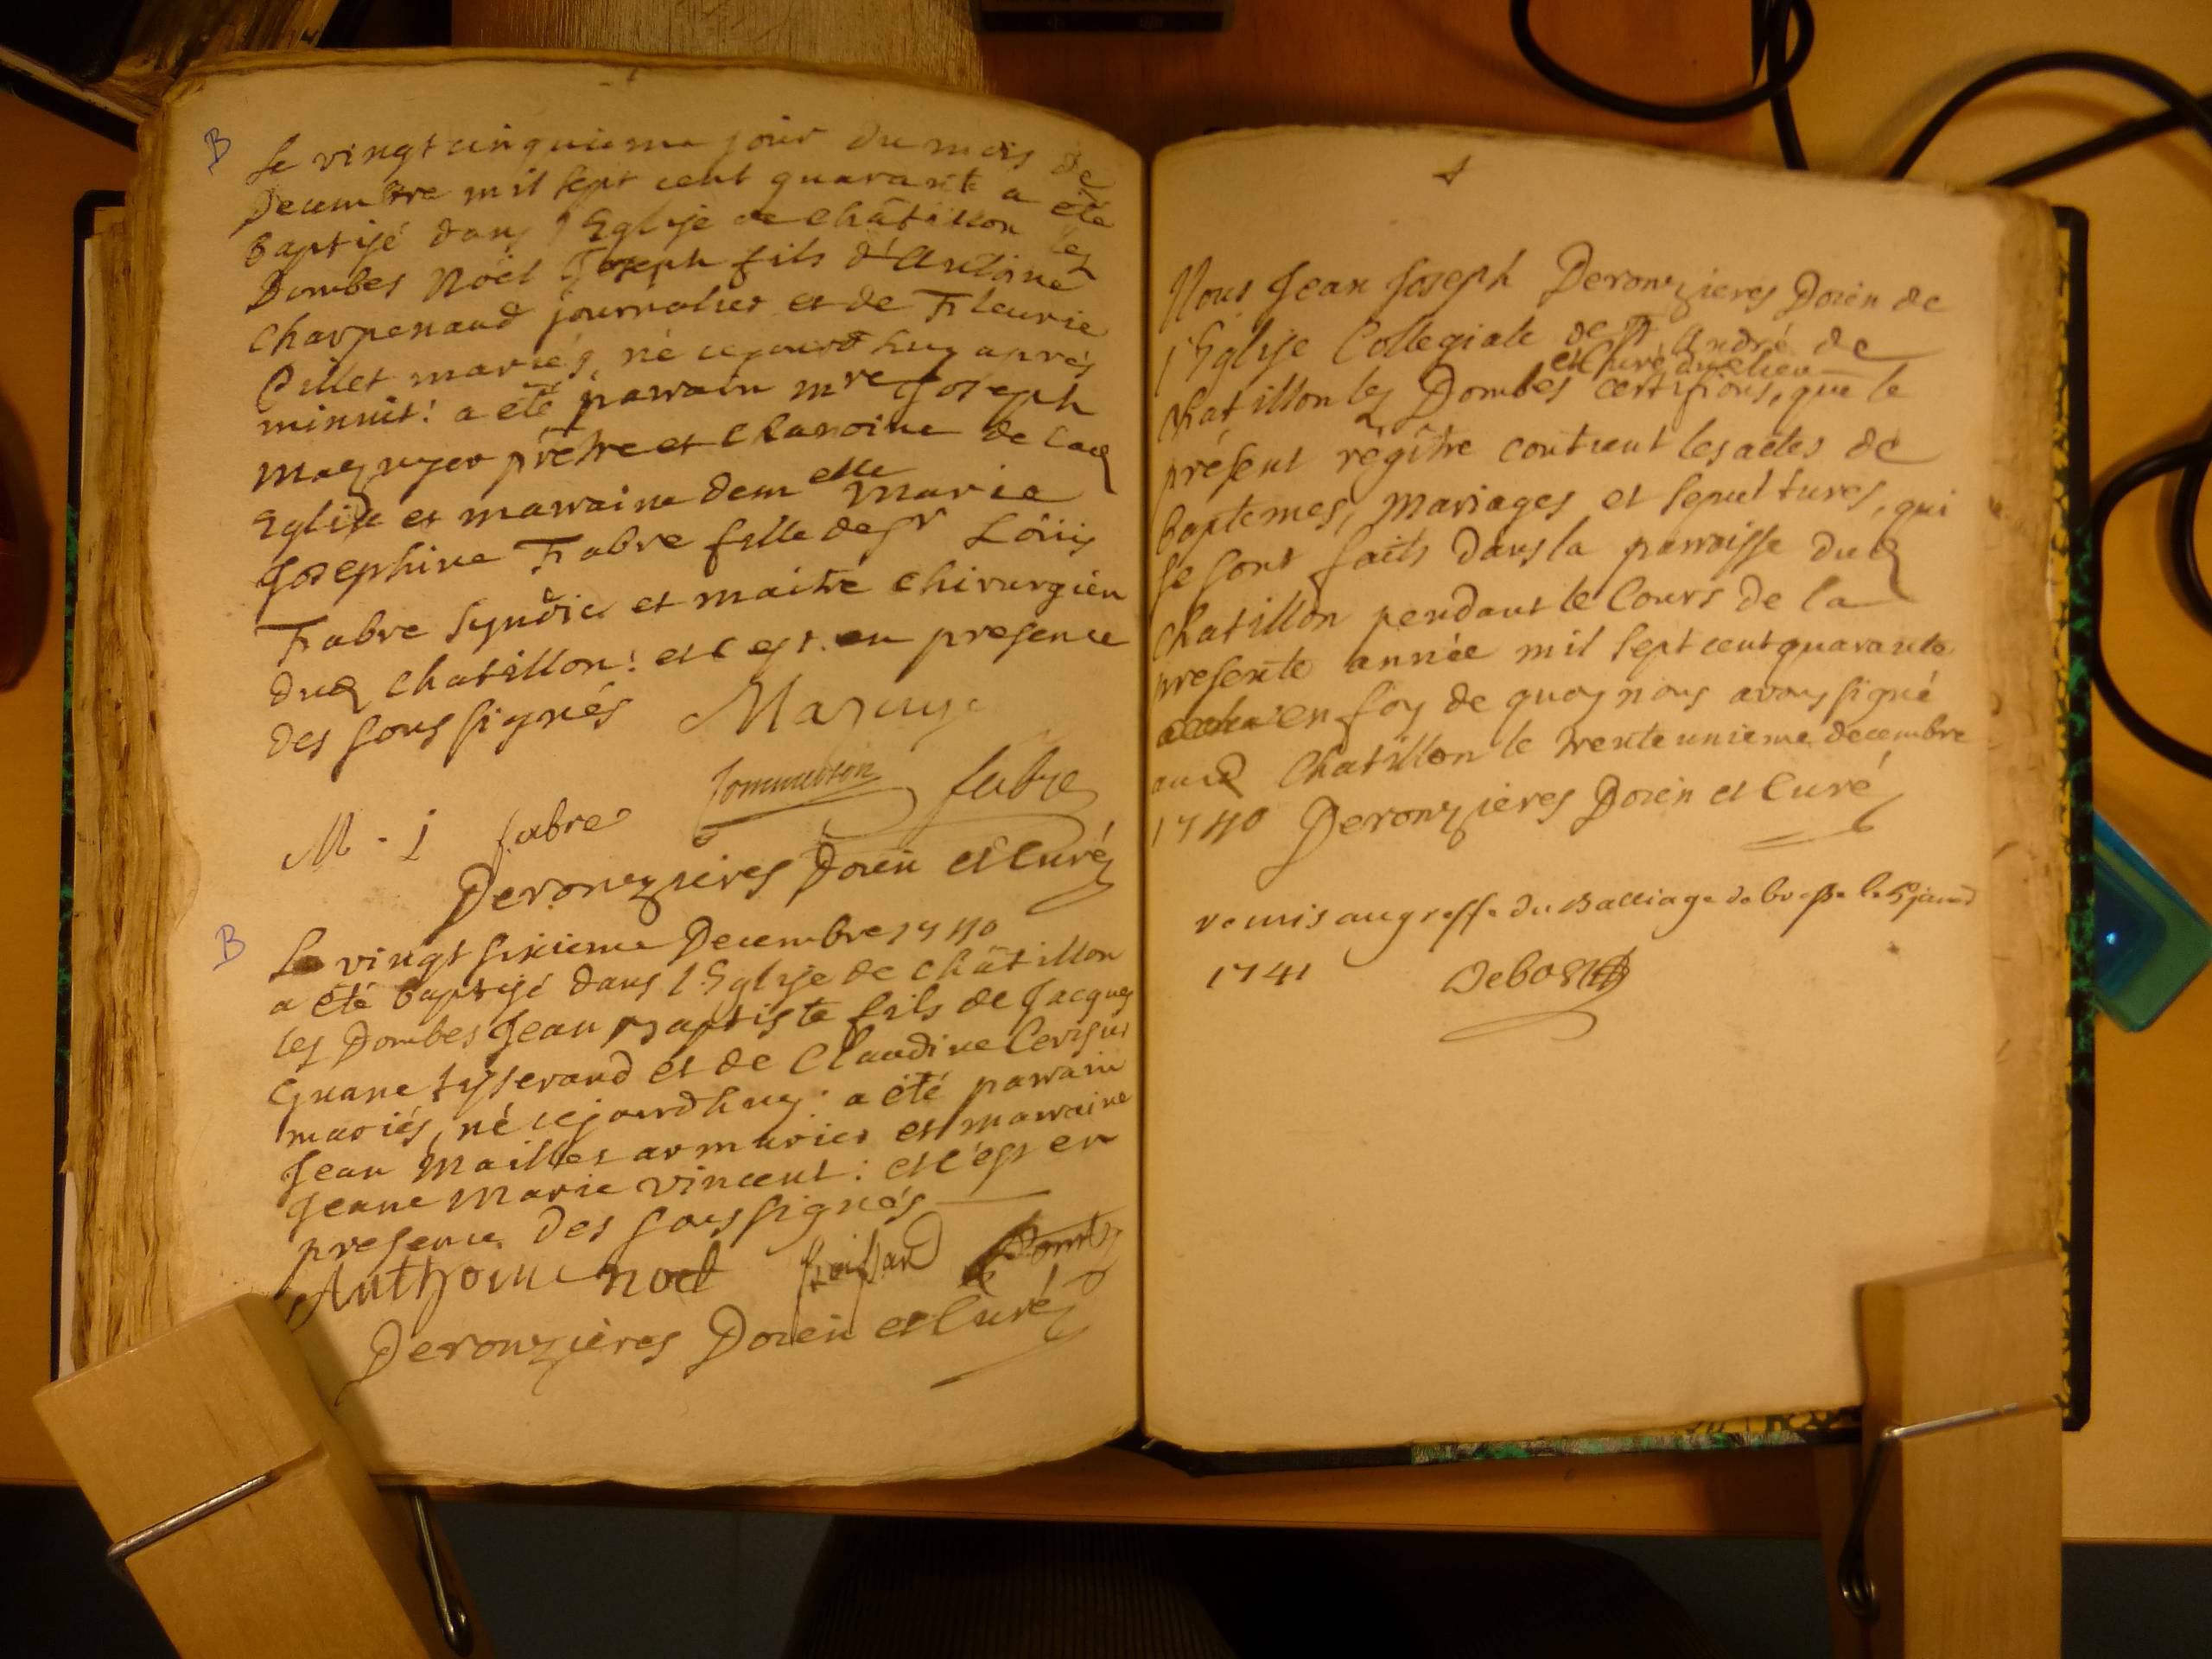 B
Le vingt cinquieme jour du mois de
Decembre mil sept cent quarante a été
baptisé dans l'Eglise de châtillon les
Dombes Nöel Joseph fils d'Antoine
Charpenaud journalier et de Fleurie
Pillet mariés, né cejourdhuy aprés
minuit: a été parrain mre Joseph
Mazuyer prêtre et Chanoine de lad
Eglise et marraine demelle Marie
Josephine Fabre fille de sr Loüis
Fabre Syndic et maitre chirurgien
dud chatillon: et c'est en presence
des soussignés Mazuye
M. j fabre fabre
Deronzieres Doien et Curé
B
Le vingt sixieme Decembre 1740
a été baptisé dans l'Eglise de châtillon
les Dombes Jean Baptiste fils de Jacques
tisserand et de Claudine
mariés, né cejourdhuy: a été parrain
Jean armurier et marraine
Jeane Marie vincent: et c'est en
presence des soussignés
Anthoine noel
Deronzières Doien et Curé
Nous Jean Joseph Deronzieres Doien de
l'Eglise Collegiale de St André de
et Curé dud lieu
Chatillon les Dombes certifions, que le
présent régître contient les actes de
baptemes, Mariages et sepultures, qui
se sont faits dans la parroisse dud
chatillon pendant le Cours de la
presente année mil sept cent quarante
en foy de quoy nous avons signé
aud Chatillon le trente unieme decembre
1740 Deronzieres Doien et Curé
remis au greffe du Balliage de bresse le 5 janv
1741 Debost